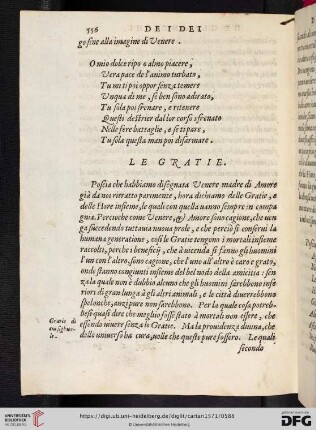 556 DE I DEI
go fine alla imagine di Venere.
O mio dolce riposo almo piacere,
Vera pace de l'animo turbato,
Tu mi ti poi oppor senza temere
Unqua di me, se ben sino adirato,
Tu sola poi frenare, e ritenere
Questi destrier dal lor corso sfrenato
Nelle fere battaglie, e se ti pare,
Tu sola questa man poi disarmare.
LE GRATIE.
Poscia che habbiamo disegnata Venere madre di Amore
già da noi ritratto parimente, hora diciamo delle Gratie, e
delle Hore insieme, le quali con quella vanno sempre in compa
gnia. Percioche come Venere, & Amore sono cagione, che ven
ga succedendo tuttauia noua prole, e che perciò si conserui la
humana generatione, così le Gratie tengono i mortali insieme
raccolti, perche i beneficij, che à vicenda si fanno gli huomini
l'un con l'altro, sono cagione, che l'uno all'altro è caro e grato,
onde stanno congiunti insieme del bel nodo della amicitia: sen
za la quale non è dubbio alcuno che gli huomini sarebbono infe
riori di gran lunga à gli altri animali, e le città diuerrebbono
spelonche, anzi pure non sarebbono. Per la qual cosa potreb
besi quasi dire che meglio fosse stato à mortali non essere, che
essendo uiuere senza le Gratie. Ma la prouidenza diuina, che
delle uniuerso ha cura, uolle che queste pure fossero. Le quali
secondo
Gratie di
https://digi.ub.uni-heidelberg.de/diglit/cartari1571/0588
© Universitätsbibliothek Heidelberg
UNIVERSITÄTS-
BIBLIOTHEK
HEIDELBERG
gefördert durch die
DFG